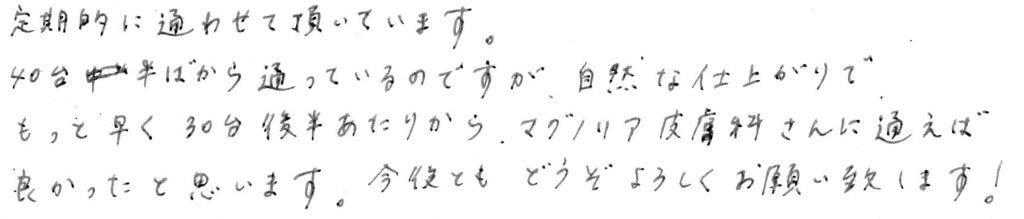 定期的に通わせて頂いています。
40台半ばから通っているのですが、自然な仕上がりで
もっと早く30台後半あたりから、マグノリア皮膚科さんに通えば
良かったと思います。今後ともどうぞよろしくお願い致します!